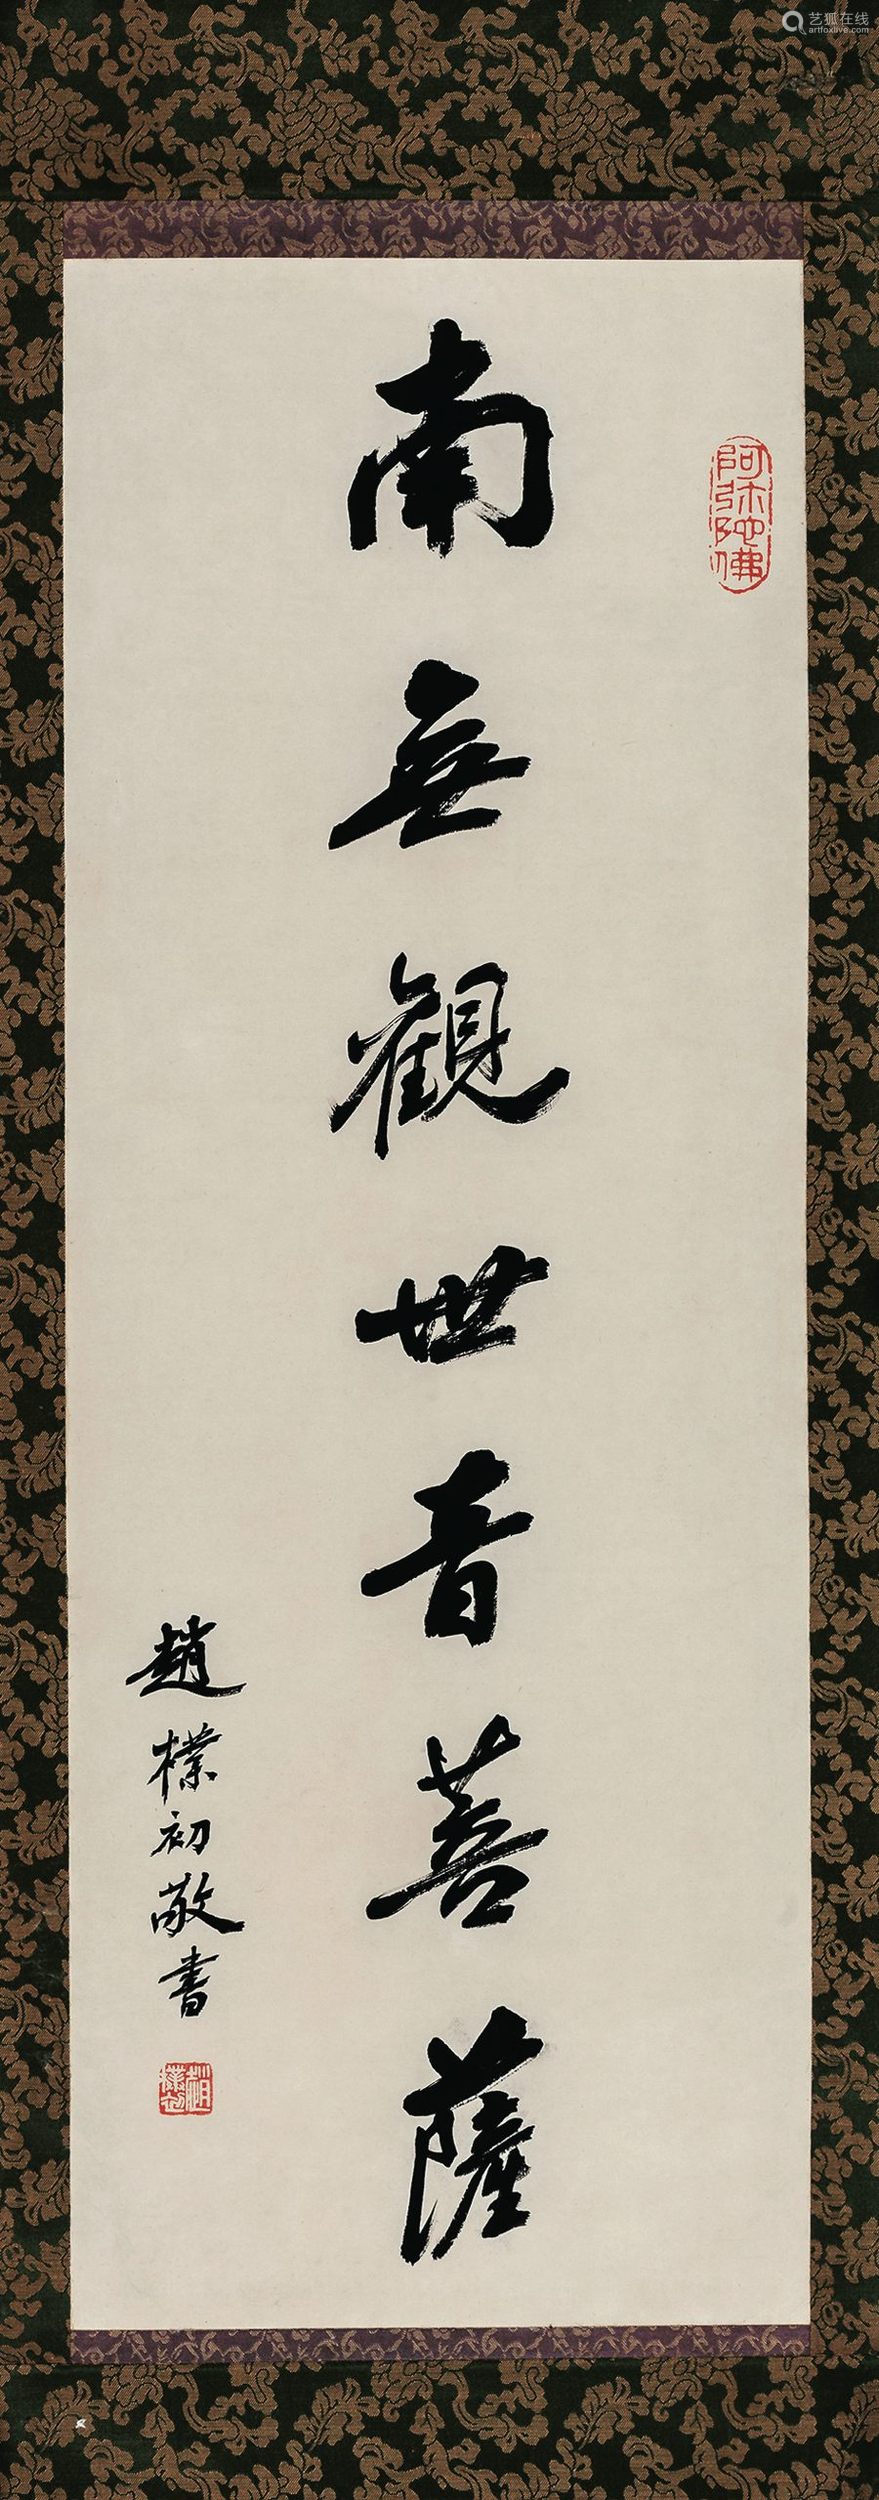 艺狐在线
artfoxlive.com
阿弥陀佛
南無觀世音菩薩
趙樸初敬書
趙樸初